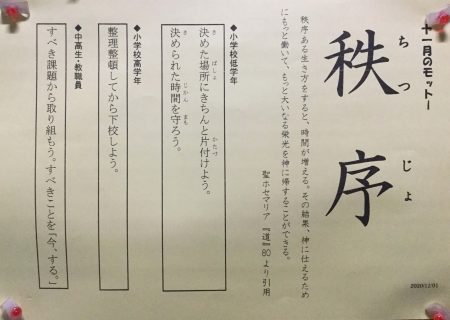 十一月のモットー
秩序
ちつじょ
秩序ある生き方をすると、時間が増える。その結果、神に仕えるため
にもっと働いて、もっと大いなる栄光を神に帰することができる。
聖ホセマリア 『道』80より引用
◆小学校低学年
決めた場所にきちんと片付けよう。
決められた時間を守ろう。
◆小学校高学年
整理整頓してから下校しよう。
◆中高生・教職員
すべき課題から取り組もう。すべきことを「今、する。」
2020/11/01